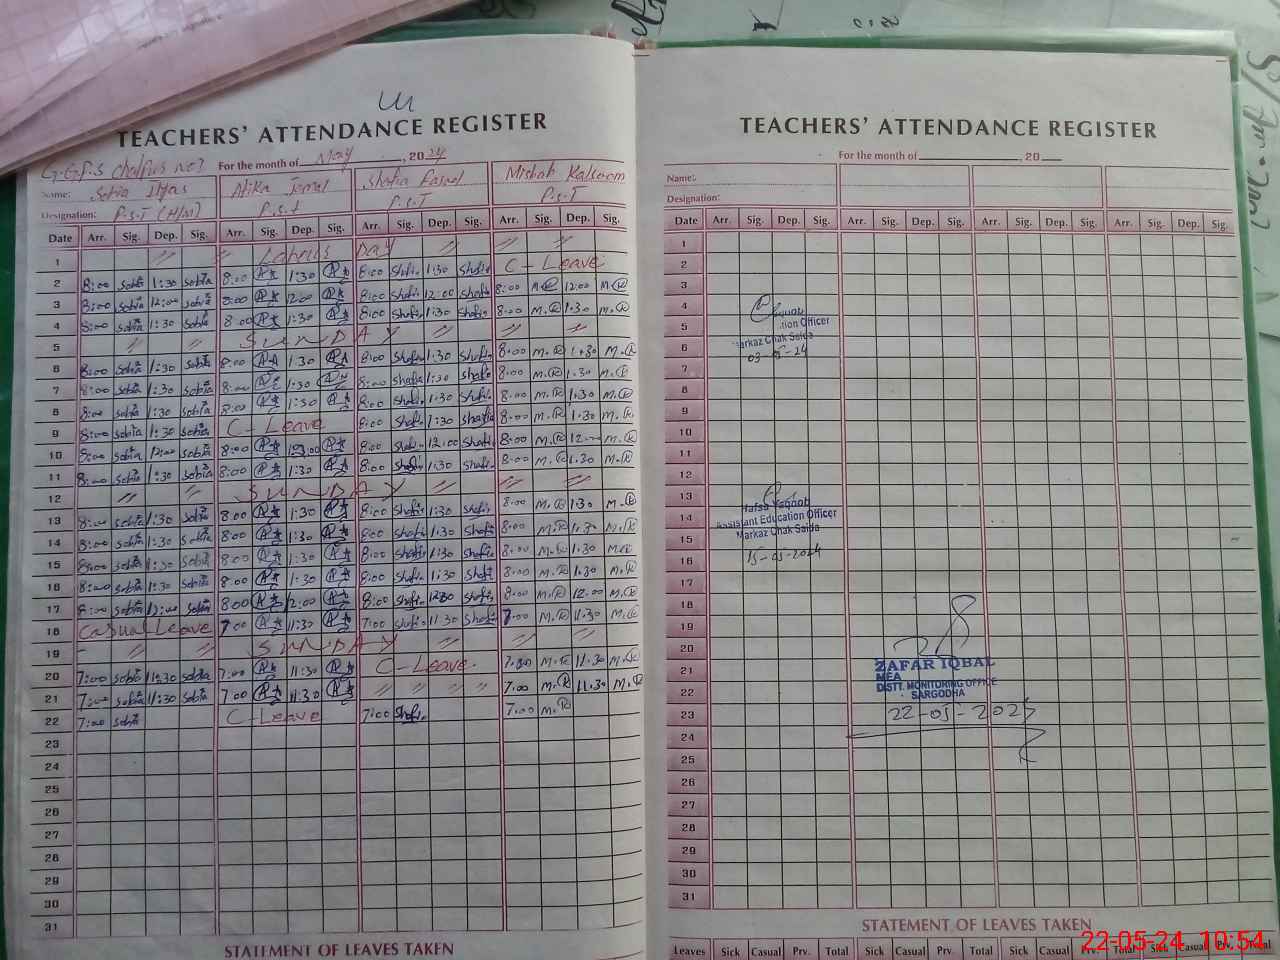 TEACHERS' ATTENDANCE REGISTER
G.G.P.S
For the month of May, 2024
Name: Sobia Ilyas Atika Jamal Shafia Faisal Misbah Kalsoom
Designation: P.S.T (H/M) P.S.T P.S.T P.S.T
Date Arr. Sig. Dep. Sig. Arr. Sig. Dep. Sig. Arr. Sig. Dep. Sig. Arr. Sig. Dep. Sig.
1 " " " Day " " "
2 8:00 sobia 1:30 sobia 8:00 1:30 8:00 Shafi 1:30 Shafi C-Leave
3 8:00 sobia 12:00 sobia 8:00 12:00 8:00 Shafi 12:00 Shafi 8:00 M.R 12:00 M.R
4 8:00 sobia 1:30 sobia 8:00 1:30 8:00 Shafi 1:30 Shafi 8:00 M.R 1:30 M.R
5 " " SUNDAY " " "
6 8:00 sobia 1:30 sobia 8:00 1:30 8:00 Shafi 1:30 Shafi 8:00 M.R 1:30 M.R
7 8:00 sobia 1:30 sobia 8:00 1:30 8:00 Shafi 1:30 Shafi 8:00 M.R 1:30 M.R
8 8:00 sobia 1:30 sobia 8:00 1:30 8:00 Shafi 1:30 Shafi 8:00 M.R 1:30 M.R
9 8:00 sobia 1:30 sobia C-Leave 8:00 Shafi 1:30 Shafia 8:00 M.R 1:30 M.R
10 8:00 sobia 12:00 sobia 8:00 12:00 8:00 Shafi 12:00 Shafi 8:00 M.R 12:00 M.R
11 8:00 sobia 1:30 sobia 8:00 1:30 8:00 Shafi 1:30 Shafi 8:00 M.R 1:30 M.R
12 " " SUNDAY " " "
13 8:00 sobia 1:30 sobia 8:00 1:30 8:00 Shafi 1:30 Shafi 8:00 M.R 1:30 M.R
14 8:00 sobia 1:30 sobia 8:00 1:30 8:00 Shafi 1:30 Shafi 8:00 M.R 1:30 M.R
15 8:00 sobia 1:30 sobia 8:00 1:30 8:00 Shafi 1:30 Shafi 8:00 M.R 1:30 M.R
16 8:00 sobia 1:30 sobia 8:00 1:30 8:00 Shafi 1:30 Shafi 8:00 M.R 1:30 M.R
17 8:00 sobia 12:00 sobia 8:00 12:00 8:00 Shafi Shafi 8:00 M.R 12:00 M.R
18 Casual Leave 7:00 11:30 7:00 Shafi 11:30 Shafi 7:00 M.R 11:30 M.R
19 " SUNDAY " " "
20 7:00 sobia 11:30 sobia 7:00 11:30 C-Leave 7:00 M.R 11:30 M.R
21 7:00 sobia 11:30 sobia 7:00 11:30 " " " " 7:00 M.R 11:30 M.R
22 7:00 sobia C-Leave 7:00 Shafi 7:00 M.R
23
24
25
26
27
28
29
30
31
STATEMENT OF LEAVES TAKEN
TEACHERS' ATTENDANCE REGISTER
For the month of , 20
Name:
Designation:
Date Arr. Sig. Dep. Sig. Arr. Sig. Dep. Sig. Arr. Sig. Dep. Sig. Arr. Sig. Dep. Sig.
1
2
3
4
5 tion Officer
6 Markaz Chak Saida
03-05-24
7
8
9
10
11
12
13 Hafsa Yaqoob
14 Assistant Education Officer
Markaz Chak Saida
15
16 15-05-2024
17
18
19
20
21 ZAFAR IQBAL
MEA
22 DISTT. MONITORING OFFICE
SARGODHA
23 22-05-202
24
25
26
27
28
29
30
31
STATEMENT OF LEAVES TAKEN
Leaves Sick Casual Prv. Total Sick Casual Prv. Total Sick Casual Prv. Total Sick Casual Prv. Total
22-05-24 10:54